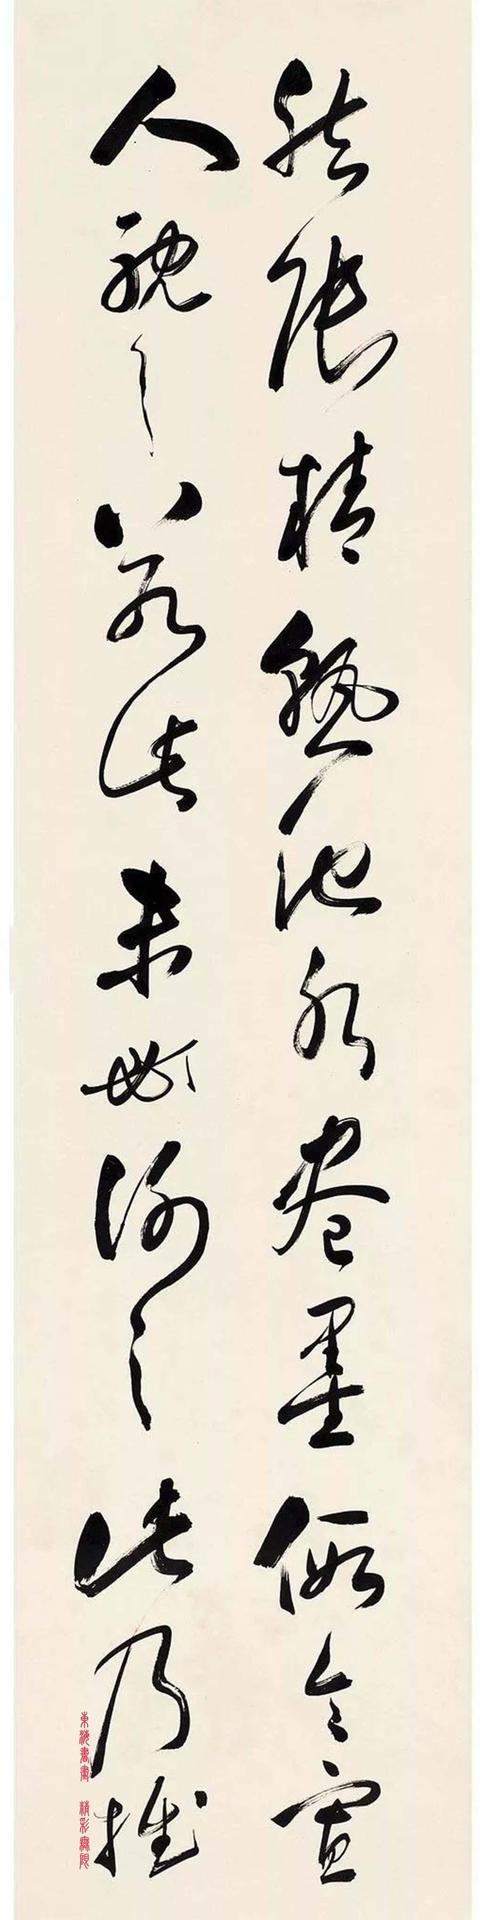 然張精熟池水盡墨假令寡
人耽之若此未必謝之此乃推
東海書畫 精彩無限